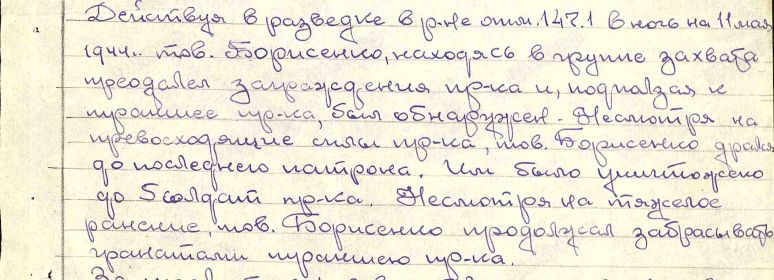 Действуя в разведке в р-не отм. 147.1 в ночь на 11 мая
1944.. тов. Борисенко, находясь в группе захвата
преодолел заграждения пр-ка и, подползая к
траншее пр-ка, был обнаружен. Несмотря на
превосходящие силы пр-ка, тов. Борисенко дрался
до последнего патрона. Им было уничтожено
до 5 солдат пр-ка. Несмотря на тяжелое
ранение, тов. Борисенко продолжал забрасывать
гранатами траншею пр-ка.